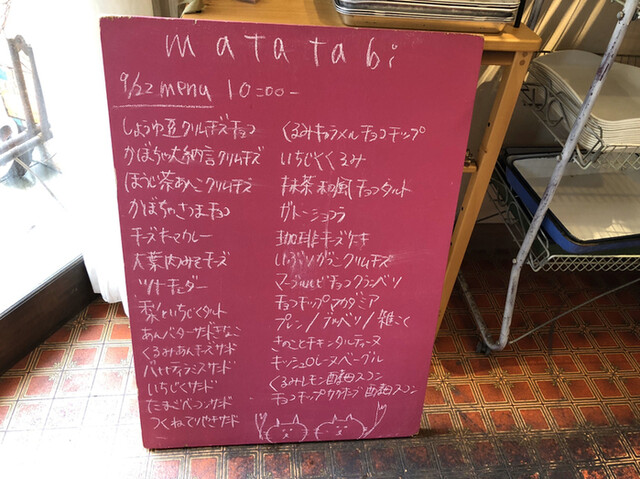 matatabi
9/22 menu 10:00-
しょうゆ豆クリームチーズチョコ
かぼちゃ大納言クリームチーズ
ほうじ茶あんこクリームチーズ
かぼちゃさつまチョコ
チーズキーマカレー
大葉肉みそチーズ
ツナチェダー
梨といちじくタルト
あんバターサンドきなこ
くるみあんチーズサンド
いちじくサンド
たまごベーコンサンド
つくねてりやきサンド
くるみキャラメルチョコチップ
いちじくくるみ
抹茶和風チョコタルト
ガトーショコラ
珈琲チーズケーキ
クリームチーズ
マーブルルビーチョコクランベリー
チョコチップマカダミア
プレーン/ブルーベリー/雑こく
きのことチキンタルティーヌ
キッシュロレーヌベーグル
くるみレモン酵母スコン
チョコチップ酵母スコン